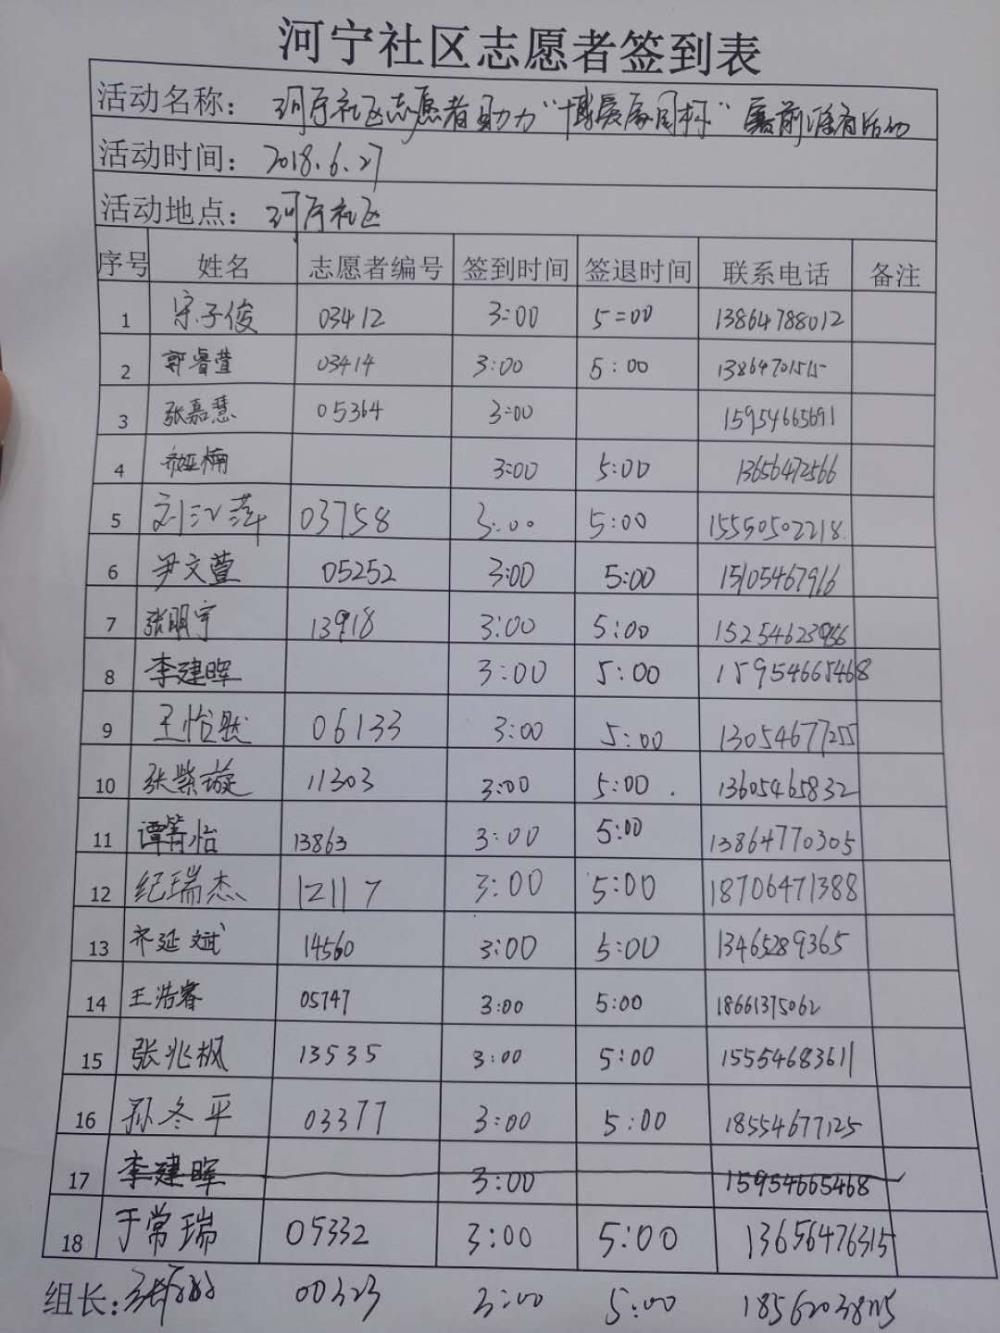 河宁社区志愿者签到表
活动名称：河宁社区志愿者助力
活动时间：2018.6.27
活动地点：河宁社区
序号 姓名 志愿者编号 签到时间 签退时间 联系电话 备注
1 宗子俊 03412 3:00 5:00 13864788012
2 郭睿萱 03414 3:00 5:00
3 张嘉慧 05364 3:00 15954665691
4 3:00 5:00 13656472566
5 03758 3:00 5:00 15550502218
6 尹文萱 05252 3:00 5:00 15105467916
7 张明宇 13918 3:00 5:00
8 李建晖 3:00 5:00 15954665468
9 王怡然 06133 3:00 5:00 13054677255
10 张紫璇 11303 3:00 5:00 13605465832
11 谭箐怡 13863 3:00 5:00 13864770305
12 纪瑞杰 12117 3:00 5:00 18706471388
13 齐延斌 14560 3:00 5:00 13465289365
14 王浩睿 05747 3:00 5:00 18661375062
15 张兆枫 13535 3:00 5:00 15554683611
16 孙冬平 03377 3:00 5:00 18554677125
17 李建晖 3:00 15954665468
18 于常瑞 05332 3:00 5:00 13656476315
组长: 00323 3:00 5:00